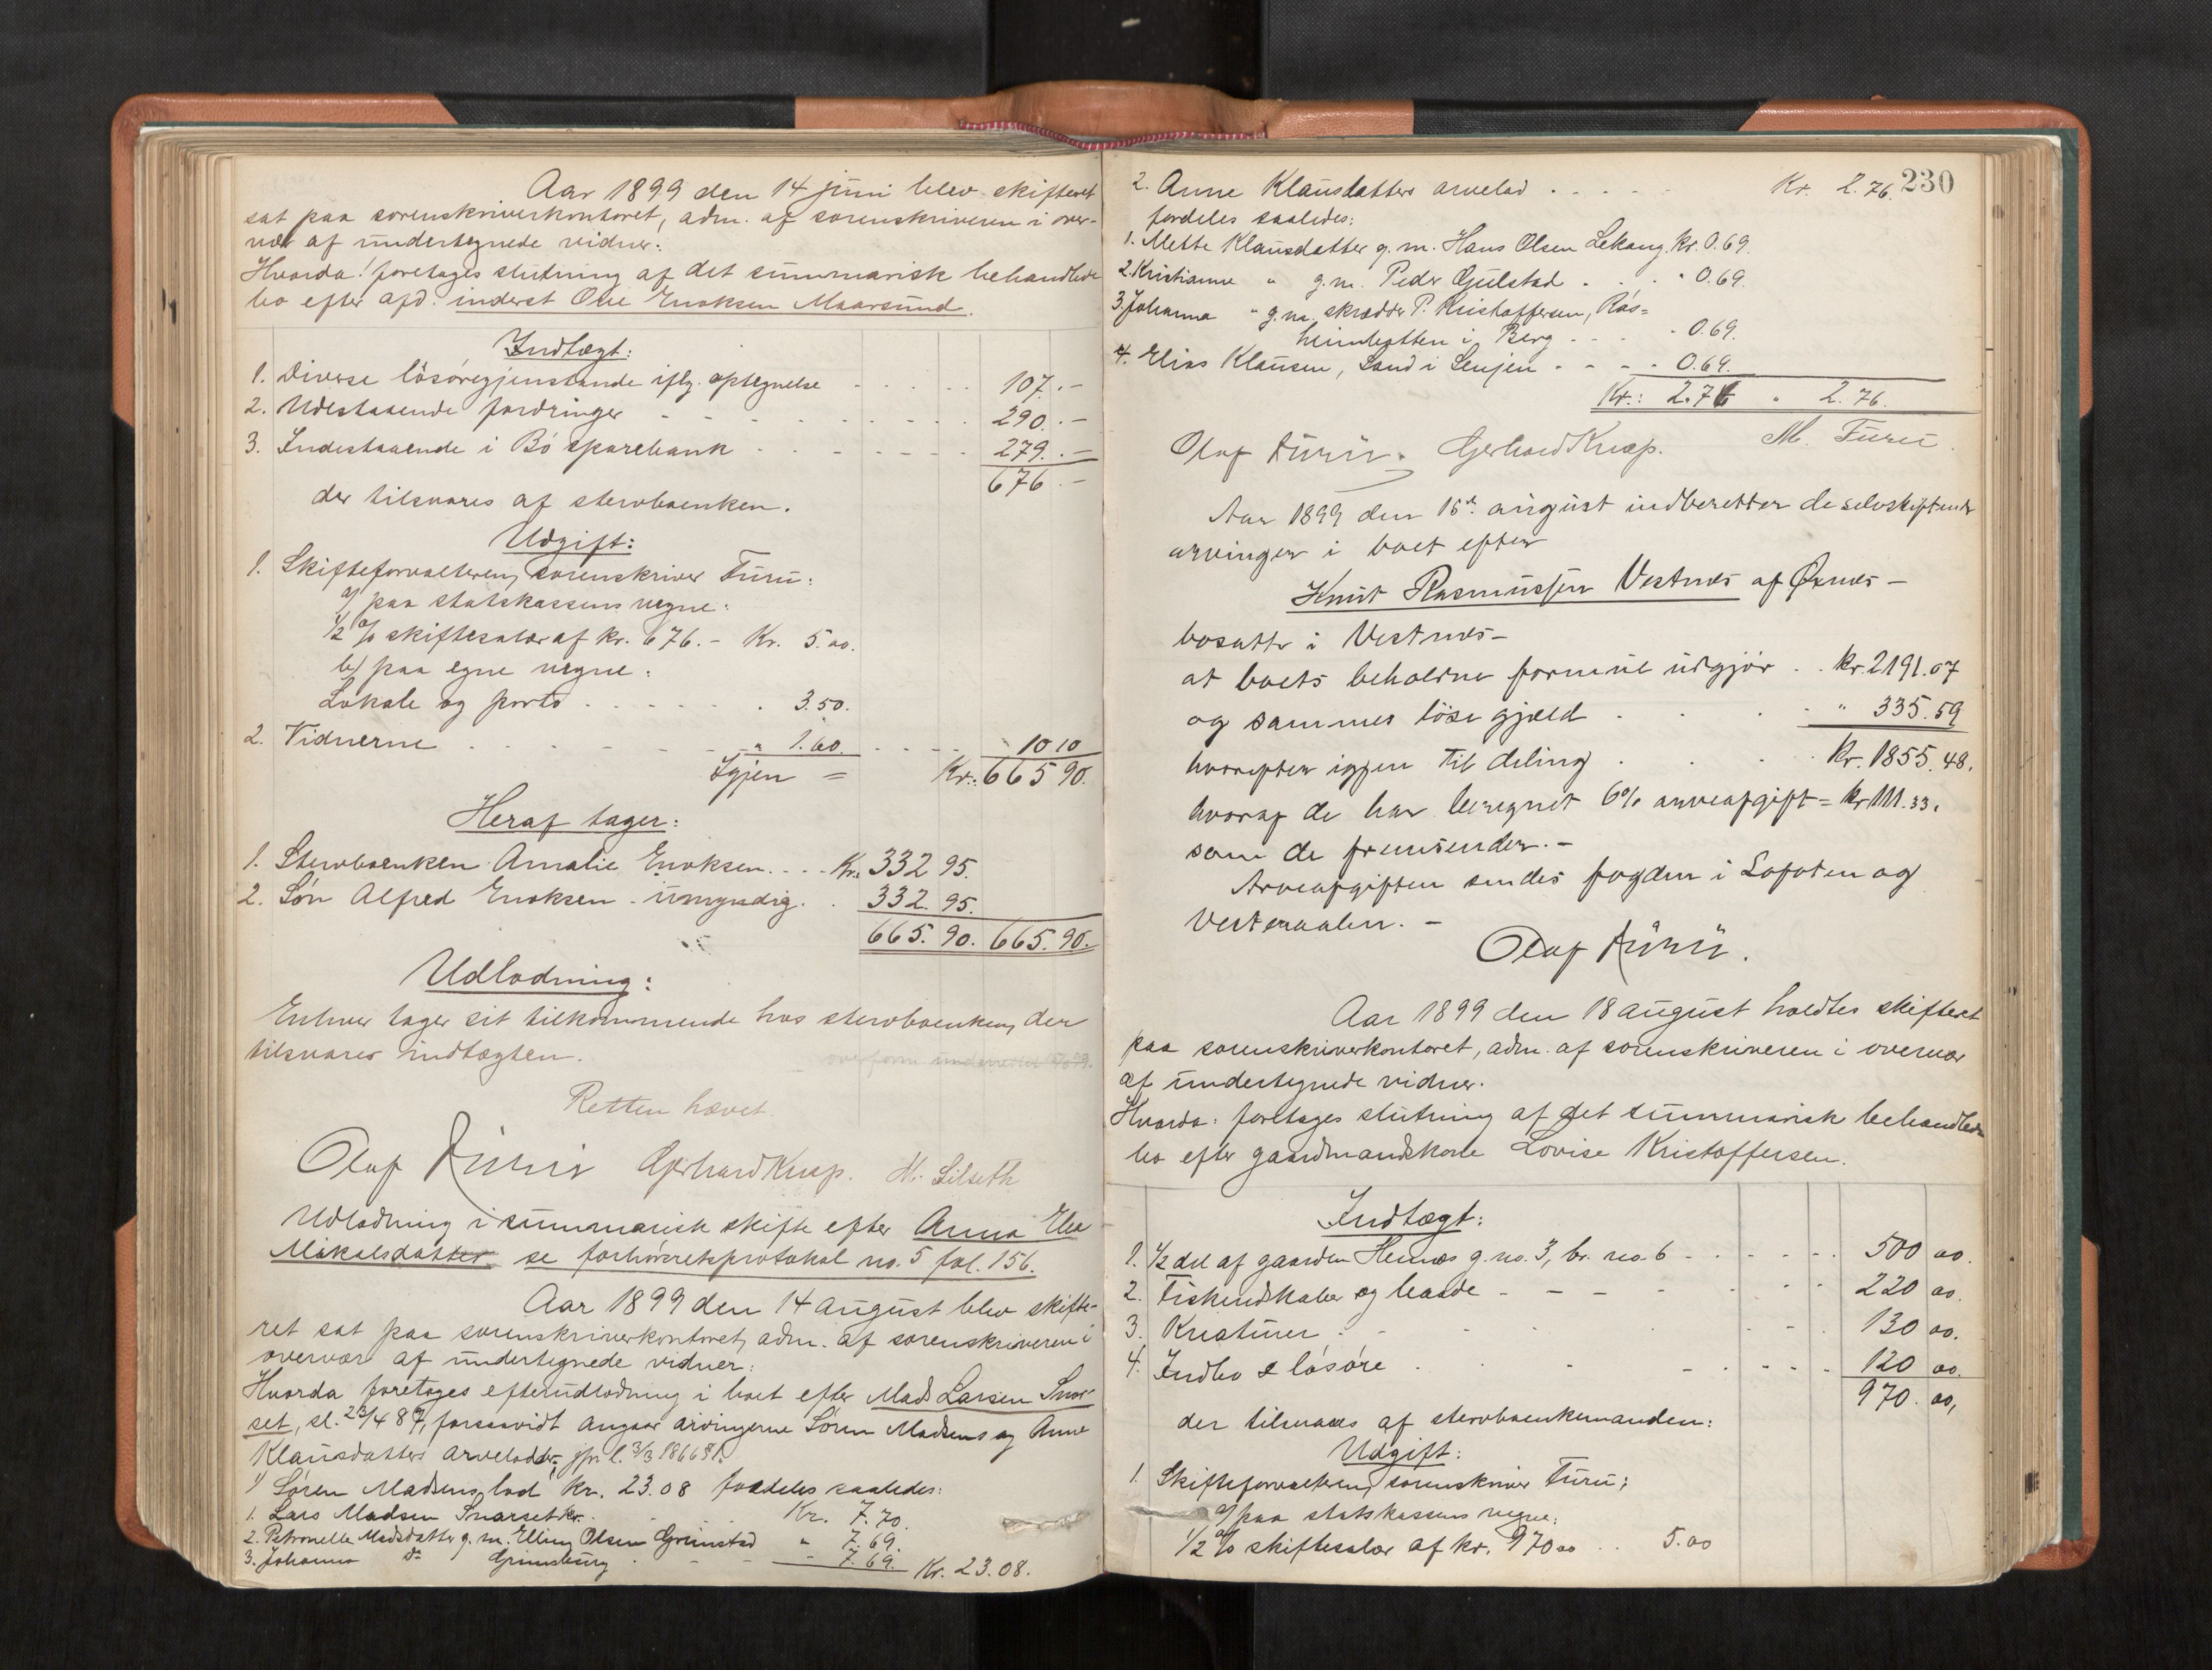 Aar 1899 den 14 juni blev skifteret
sat paa sorenskriverkontoret, adm. af sorenskriveren i over-
vær af undertegnede vidner:
Hvorda! foretages slutning af det summarisk behandlede
bo efter afd. inderst Ole Enoksen Maarsund.
Indtægt:
1. Diverse løsøregjenstande iflg. optegnelse 107.-
2. Udestaaende fordringer 290.-
3. Indestaaende i Bø sparebank 279.-
676.-
der tilsvares af stervboenken.
Udgift:
1. Skifteforvalteren, sorenskriver Furu:
a/ paa statskassens vegne:
1/2 % skiftesalær af kr. 676.- Kr. 5.00.
b/ paa egne vegne:
Lokale og porto 3.50.
2. Vidnerne " 1.60. 10 10
Igjen = Kr.: 665 90.
Heraf tager:
1. Stervboenken Amalie Enoksen. Kr. 332 95.
2. Søn Alfred Enoksen - umyndig. 332. 95.
665. 90. 665. 90.
Udlodning:
Enhver tager sit tilkommende hos stervboenken, der
tilsvarer indtægten.
Retten hævet.
Olaf Furu Gerhard Knap. M. Silseth
Udlodning i summarisk skifte efter Anna Elea
Mikalsdatter se forhørsretsprotokol no. 5 fol. 156.
Aar 1899 den 14 august blev skifte-
ret sat paa sorenskriverkontoret, adm. af sorenskriveren i
overvær af undertegnede vidner:
Hvorda foretages efterudlodning i boet efter Mads Larsen Snar-
set, sl. 23/4 87, forsaavidt angaar arvingerne Søren Madsens og Anne
Klausdatters arvelodder, jfr. l. 3/3 1866 § 1.
1/ Søren Madsens lod kr. 23.08 fordeles saaledes:
1. Lars Madsen Snarset kr. Kr. 7.70.
2. Petronelle Madsdatter g. m. Elling Olsen Grimstad " 7.69.
3. Johanna Do Grimsburg - 7.69. Kr. 23.08.
230
2. Anne Klausdatters arvelod Kr. 2.76.
fordeles saaledes:
1. Mette Klausdatter g. m. Hans Olsen Lekang, kr. 0.69.
2. Kristianne " g. m. Peder Gulstad " 0.69.
3. Johanna " g. m. skrædder P. Kristoffersen, Røs-
heimbotten i Berg " 0.69.
4. Elias Klausen, Sand i Senjen 0.69.
Kr.: 2.76 " 2.76.
Olaf Furu. Gerhard Knap. M. Furu
Aar 1899 den 15de august indberetter de selvskiftende
arvinger i boet efter
Knut Rasmussen Vestnes af Øxnes -
bosatte i Vestnes -
at boets beholdne formue udgjør kr. 2191.07
og sammes løse gjæld " 335.59
hvorefter igjen til deling kr. 1855.48.
hvoraf de har beregnet 6% arveafgift = kr 111.33.
som de fremsender. -
Arveafgiften sendes fogden i Lofoten og
Vesteraalen. -
Olaf Furu.
Aar 1899 den 18 august holdtes skifteret
paa sorenskriverkontoret, adm. af sorenskriveren i overvær
af undertegnede vidner.
Hvorda: foretages slutning af det summarisk behandlede
bo efter gaardmandskone Lovise Kristoffersen.
Indtægt:
1. 1/2 del af gaarden Hennes g. no. 3, br. no. 6 500 00.
2. Fiskeredskaber og baade 220 00.
3. Kreaturer 130 00.
4. Indbo & løsøre 120 00.
970. 00,
der tilsvares af stervboenkemanden:
Udgift:
1. Skifteforvalteren, sorenskriver Furu:
a/ paa statskassens vegne:
1/2 % skiftesalær af kr. 970 00 5.00